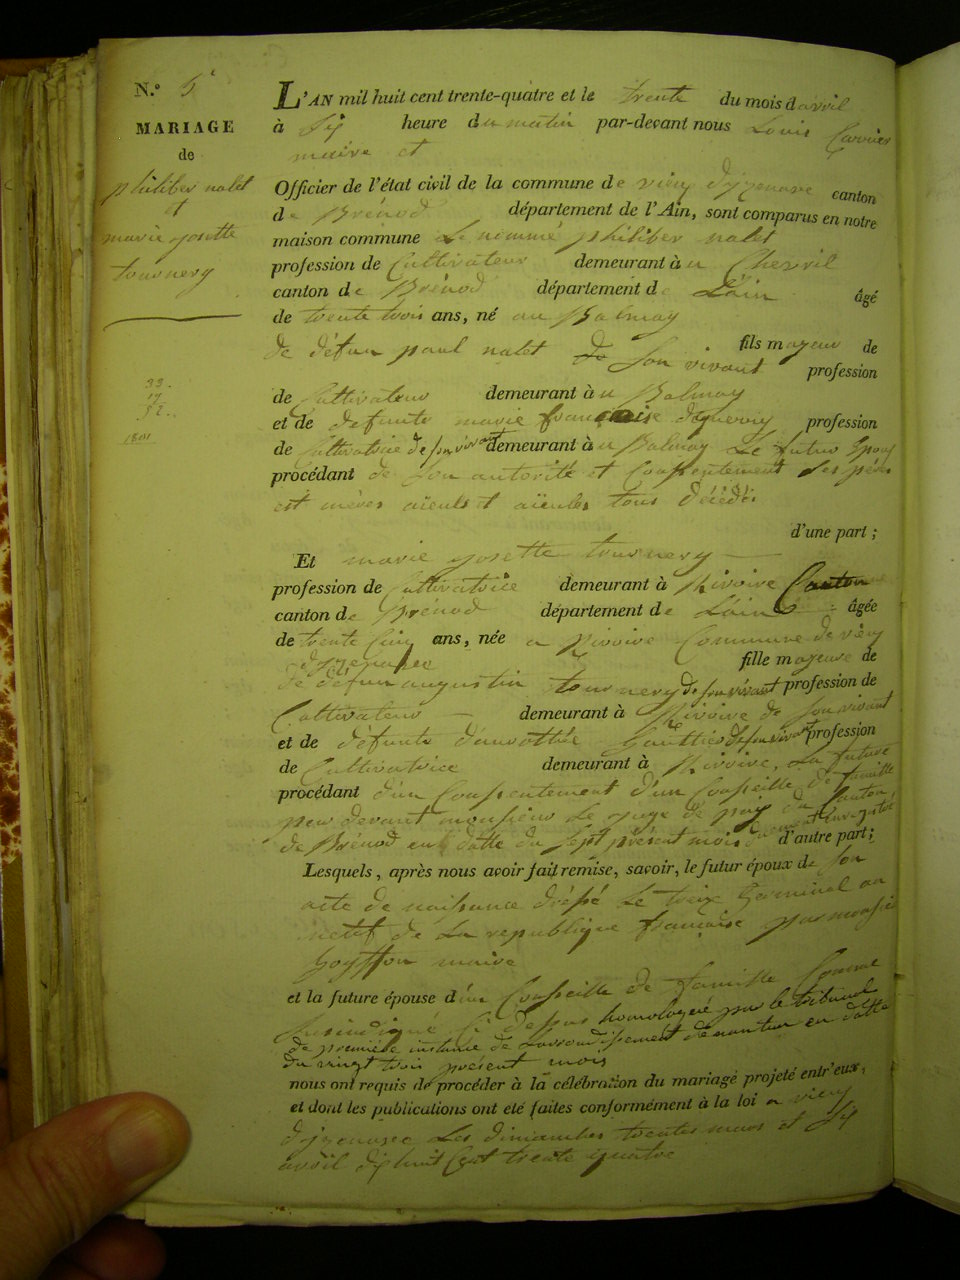 N.º 5
MARIAGE
de
philiber nalet
et
marie josette
tournery
33.
19
52..
1801
L'AN mil huit cent trente-quatre et le trente du mois d avril
à six heure du matin par-devant nous Louis Carrier
maire et
Officier de l'état civil de la commune de vieu d'izenave canton
de Brénod département de l'Ain, sont comparus en notre
maison commune Le nommé philiber nalet
profession de Cultivateur demeurant à u Chevril
canton de Brénod département de Lain âgé
de trente trois ans, né au Balmay
fils majeur de
de défun paul nalet de son vivant profession
de Cultivateur demeurant à u Balmay
et de defunte marie francaise profession
de Cultivatrice de son vivant demeurant à u Balmay Le futur Epous
procédant de son autorité et Conssentement ses pères
est mères aïeuls et aïeules tous décédés
d'une part ;
Et marie josette tournery
profession de Cultivatrice demeurant à Rivoire Canton
canton de Brénod département de Lain âgée
de trente Cinq ans, née a Rivoire Commune de vieu
d'izenave fille majeure de
de défun augustin tournery de son vivant profession de
Cultivateur demeurant à Rivoire de son vivant
et de defunte Gauthier de son vivant profession
de Cultivatrice demeurant à Rivoire, La future
procédant d'un Conssentement d'un Conseille de famille
devant monsieur Le juge de paix du Canton
de Brénod en datte du sept présent mois d'autre part ;
Lesquels, après nous avoir fait remise, savoir, le futur époux de son
acte de naissance Le treize Germinal an
neuf de La republique francaise par monsieur
maire
et la future épouse d'un Conseille de famille Comme
Ci dessus homologué par le tribunal
de première instance de Larrondissement de nantua en datte
du vingt trois présent mois
nous ont requis de procéder à la célébration du mariage projeté entr'eux,
et dont les publications ont été faites conformément à la loi a vieu
d'izenave Les dimanches trente mars et six
avril dix huit Cent trente quatre